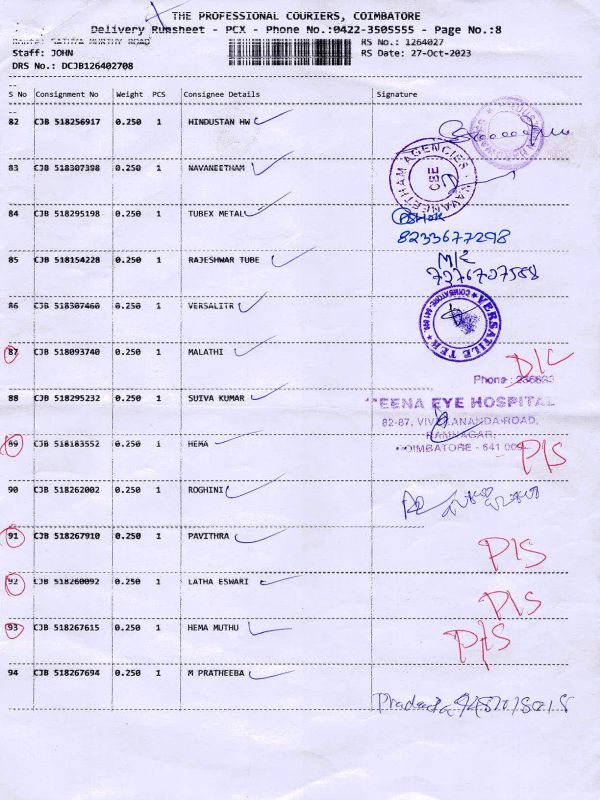 THE PROFESSIONAL COURIERS, COIMBATORE
Delivery Runsheet - PCX - Phone No.:0422-3505555 - Page No.:8
RS No.: 1264027
Staff: JOHN RS Date: 27-Oct-2023
DRS No.: DCJB126402708
S No Consignment No Weight PCS Consignee Details Signature
82 CJB 518256917 0.250 1 HINDUSTAN HW
83 CJB 518307398 0.250 1 NAVANEETHAM
NAVANEETHAM AGENCIES
CBE
84 CJB 518295198 0.250 1 TUBEX METAL
8233677298
85 CJB 518154228 0.250 1 RAJESHWAR TUBE
86 CJB 518307460 0.250 1 VERSALITR
87 CJB 518093740 0.250 1 MALATHI
D/C
Phone :
88 CJB 518295232 0.250 1 SUIVA KUMAR
EENA EYE HOSPITAL
82-87, VIVEKANANDA ROAD,
RAMNAGAR,
OIMBATORE - 641 009
89 CJB 518183552 0.250 1 HEMA
P/S
90 CJB 518262002 0.250 1 ROGHINI
91 CJB 518267910 0.250 1 PAVITHRA
P/S
92 CJB 518260092 0.250 1 LATHA ESWARI
P/S
93 CJB 518267615 0.250 1 HEMA MUTHU
P/S
94 CJB 518267694 0.250 1 M PRATHEEBA